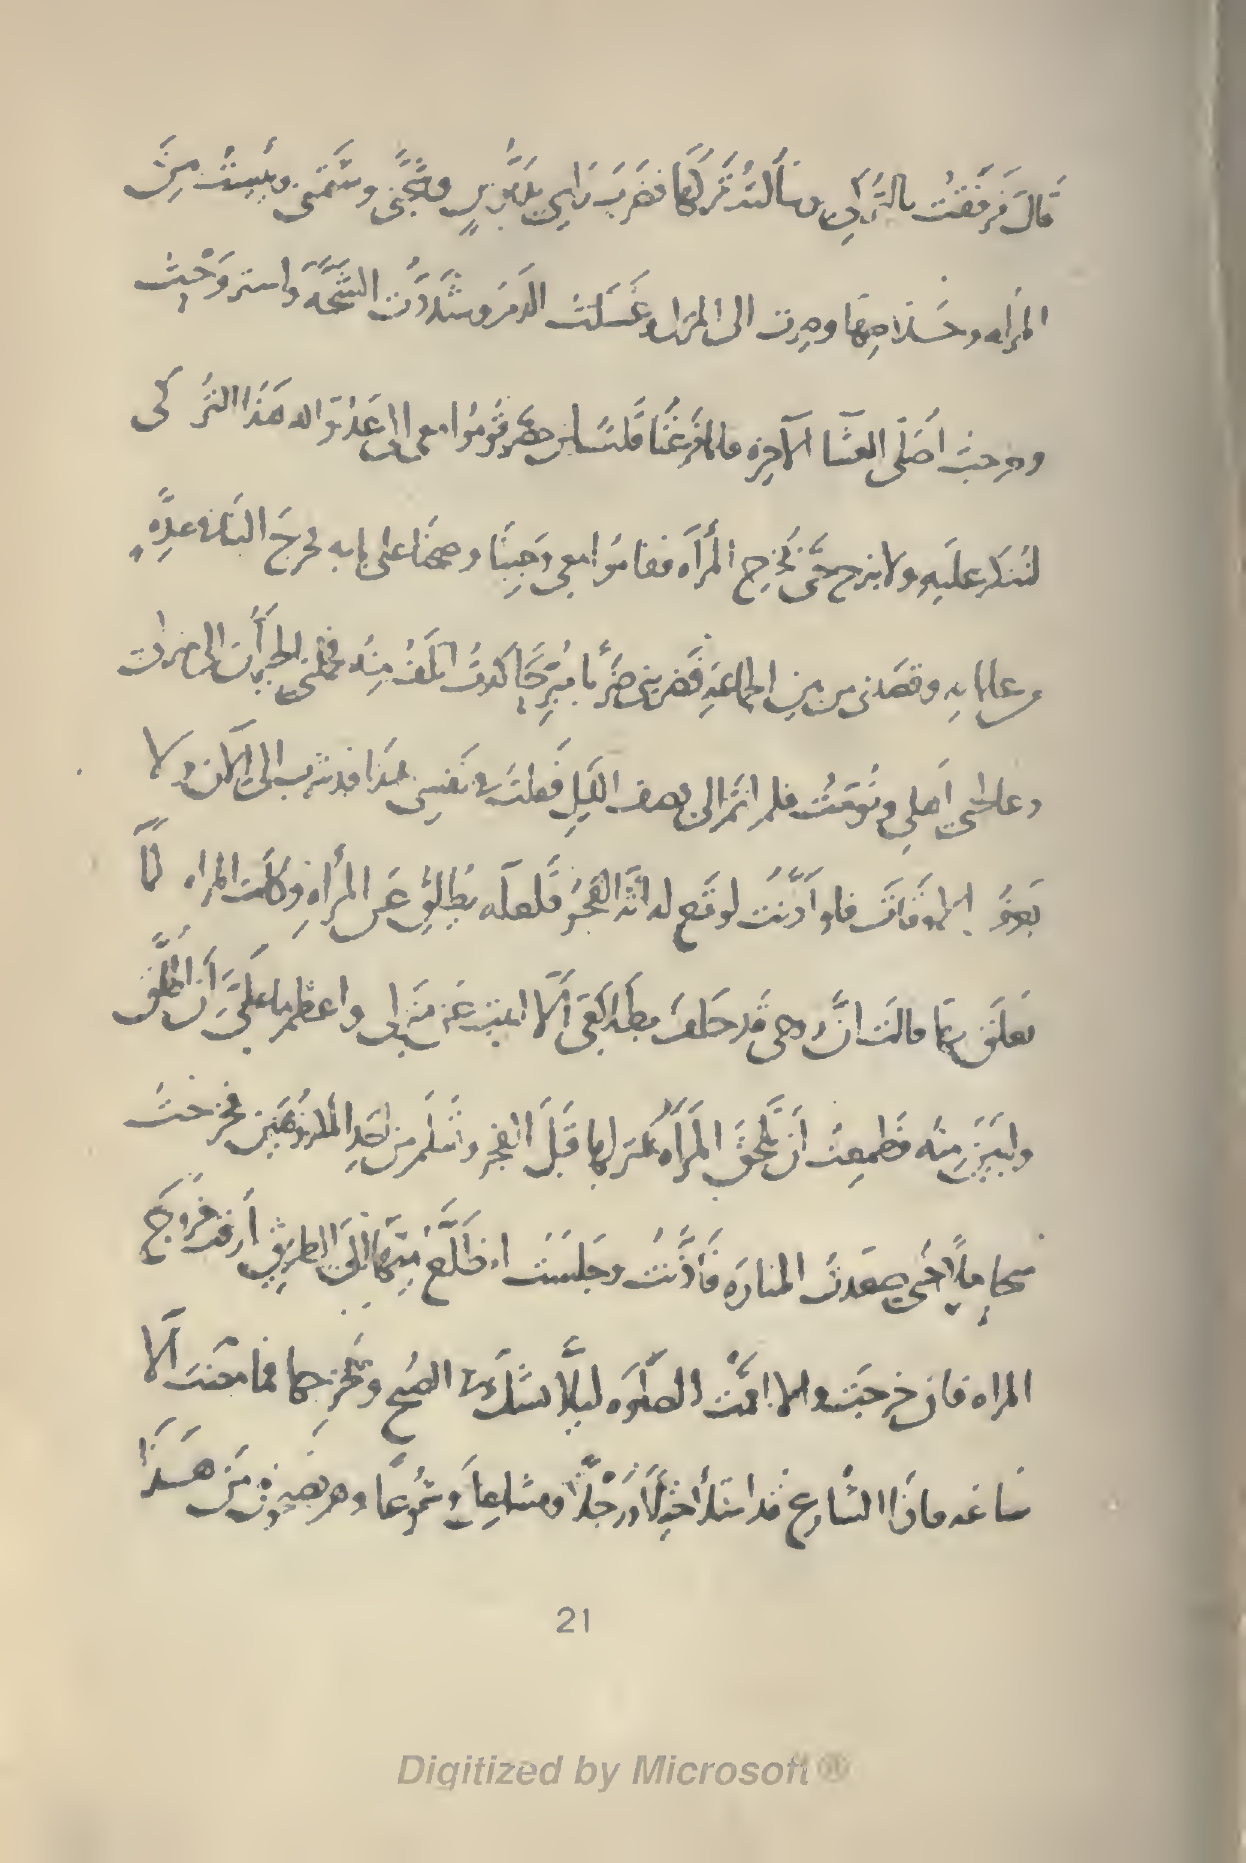 قَالَ فَرَفَقْتُ بالتُّركي وسَأَلتُهُ تَرْكَهَا فضَرَبَ رَاسِي بدَبُّوسٍ وشَجَّنِي وشَتَمَني ويَئِسْتُ مِنَ
المرأه وخَلاصِهَا وصِرت الى المنزل وغَسَلْتُ الدَمَ وشَدَدْتُ الشَّجَّهَ واسترَوَحْتُ
وخرجتُ اُصَلّي العشَا الآخِره فلما فَرَغنَا قلت لمن حضَر قُومُوا معي الى عَدُوّ الله هَذَا التُركي
لنُنكر عليَهِ ولا نبرح حَتَّى تَخرج المرأَه فقامُوا معي وَجِئنَا وصِحنَا على بابه فخرجَ الينا في عِدَّهٍ
من غلمانِهِ وقصَدني من بين الجمَاعَهِ فَضربَني ضَربًا مُبَرِّحًا كدتُ اتلَفُ مِنه فحمَلني الجيران الى منزلى
وعالجني اَهلي ونَوَّمت فلم انَم الى نصف الليل فقلت في نَفسِي هذا قد شَرب الى الآن ولا
يَعرفُ الاوقات فلو اَذَّنتُ لوقَع له انَّهُ الفجْرُ فَلعلّه يُطلِقُ عَن المرأهِ وكانَت المراه لَمَّا
تعلَّقَ بِهَا قالَت انَّ زوجي قَد حَلَفَ بطَلاقي اَلّا ابيت عَن مَنزلى واعظم ما عَلَيَّ اَن اُطَلَّق
وابينَ مِنه فَطمِعتُ اَن تَلحَقَ المَرأه منزلها قَبلَ الفَجر واَسلَم من اَحَدِ المكروهَين فخرجتُ
متحاملًا حَتَّى صعَدتُ المنارَه فَأذَّنتُ وجَلَستُ اطَّلعُ مِنهَا الى الطريق اَرقُب خُروجَ
المراه فان خرجَت والا اقمتُ الصَّلوه ليلّا يشكّ في الصُبح وتخرجها فما مضَت اَلّا
سَاعه فاذَا الشارع قد امتلأ خَيلًا ورَجْلًا ومشاعِلَ وشُموعًا وهم يَصيحُونَ مَن هَذَا
21
Digitized by Microsoft ®